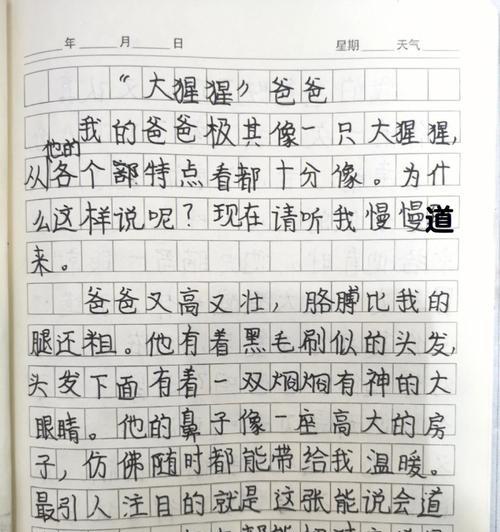 年 月 日 星期 天气
“大猩猩”爸爸
我的爸爸极其像一只大猩猩,
从他的各个部特点看都十分像。为什
么这样说呢?现在请听我慢慢道
来。
爸爸又高又壮,胳膊比我的
腿还粗。他有着黑毛刷似的头发,
头发下面有着一双炯炯有神的大
眼睛。他的鼻子像一座高大的房
子,仿佛随时都能带给我温暖。
最引人注目的就是这张能说会道